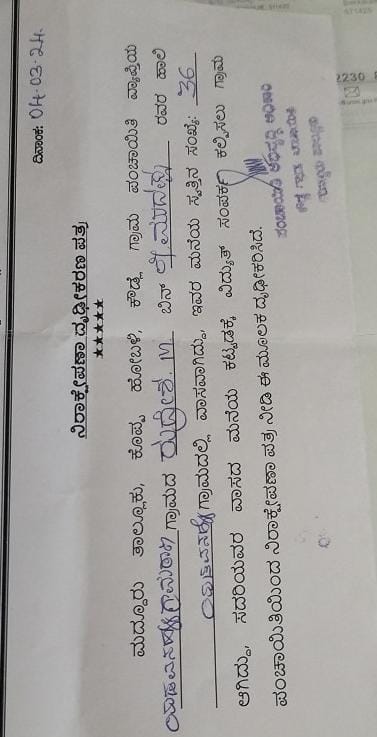 ದಿನಾಂಕ: 04.03.24
ನಿರಾಕ್ಷೇಪಣಾ ದೃಢೀಕರಣ ಪತ್ರ
★★★★★
ಮದ್ದೂರು ತಾಲ್ಲೂಕು, ಕೊಪ್ಪ ಹೋಬಳಿ, ಕೌಡ್ಲೆ ಗ್ರಾಮ ಪಂಚಾಯಿತಿ ವ್ಯಾಪ್ತಿಯ
ಗ್ರಾಮದ M. ಬಿನ್ ರವರ ಹಾಲಿ
ಗ್ರಾಮದಲ್ಲಿ ವಾಸವಾಗಿದ್ದು, ಇವರ ಮನೆಯ ಸ್ವತ್ತಿನ ಸಂಖ್ಯೆ: 36
ಆಗಿದ್ದು, ಸದರಿಯವರ ವಾಸದ ಮನೆಯ ಕಟ್ಟಡಕ್ಕೆ ವಿದ್ಯುತ್ ಸಂಪರ್ಕ ಕಲ್ಪಿಸಲು ಗ್ರಾಮ
ಪಂಚಾಯಿತಿಯಿಂದ ನಿರಾಕ್ಷೇಪಣಾ ಪತ್ರ ನೀಡಿ ಈ ಮೂಲಕ ದೃಢೀಕರಿಸಿದೆ.
ಪಂಚಾಯಿತಿ ಅಭಿವೃದ್ಧಿ ಅಧಿಕಾರಿ
2230
571425